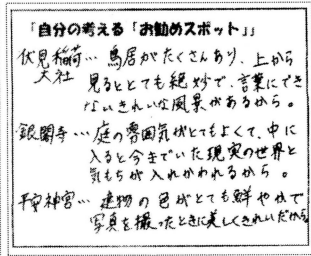 「自分の考える「お勧めスポット」」
伏見稲荷大社… 鳥居がたくさんあり、上から
見るととても絶妙で、言葉にでき
ないきれいな風景があるから。
銀閣寺… 庭の雰囲気がとてもよくて、中に
入ると今までいた現実の世界と
気もちが入れかわれるから。
平安神宮… 建物の色がとても鮮やかで
写真を撮ったときに美しくきれいだから。